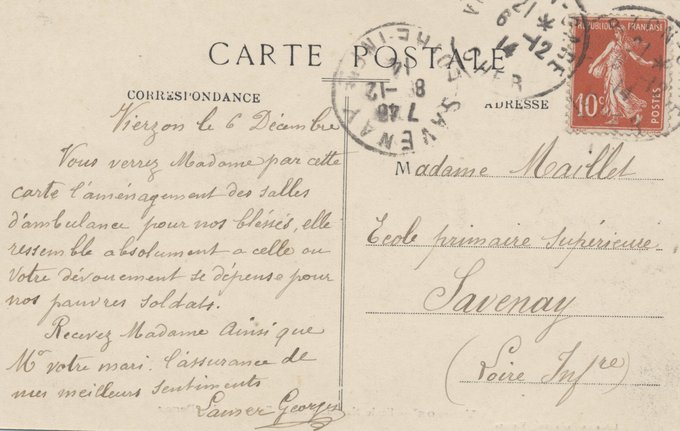 CARTE POSTALE
CORRESPONDANCE
ADRESSE
RÉPUBLIQUE FRANÇAISE
10c
POSTES
SAVENAY
7 45
8 -12
14
CHER
21 *
6 -12
14
Vierzon le 6 Décembre
Vous verrez Madame par cette
carte l'aménagement des salles
d'ambulance pour nos bléssés, elle
ressemble absolument a celle ou
votre dévouement se dépense pour
nos pauvres soldats.
Recevez Madame Ainsi que
Mr votre mari. l'assurance de
mes meilleurs sentiments
Georges
Madame Maillet
Ecole primaire supérieure
Savenay
(Loire Infre)